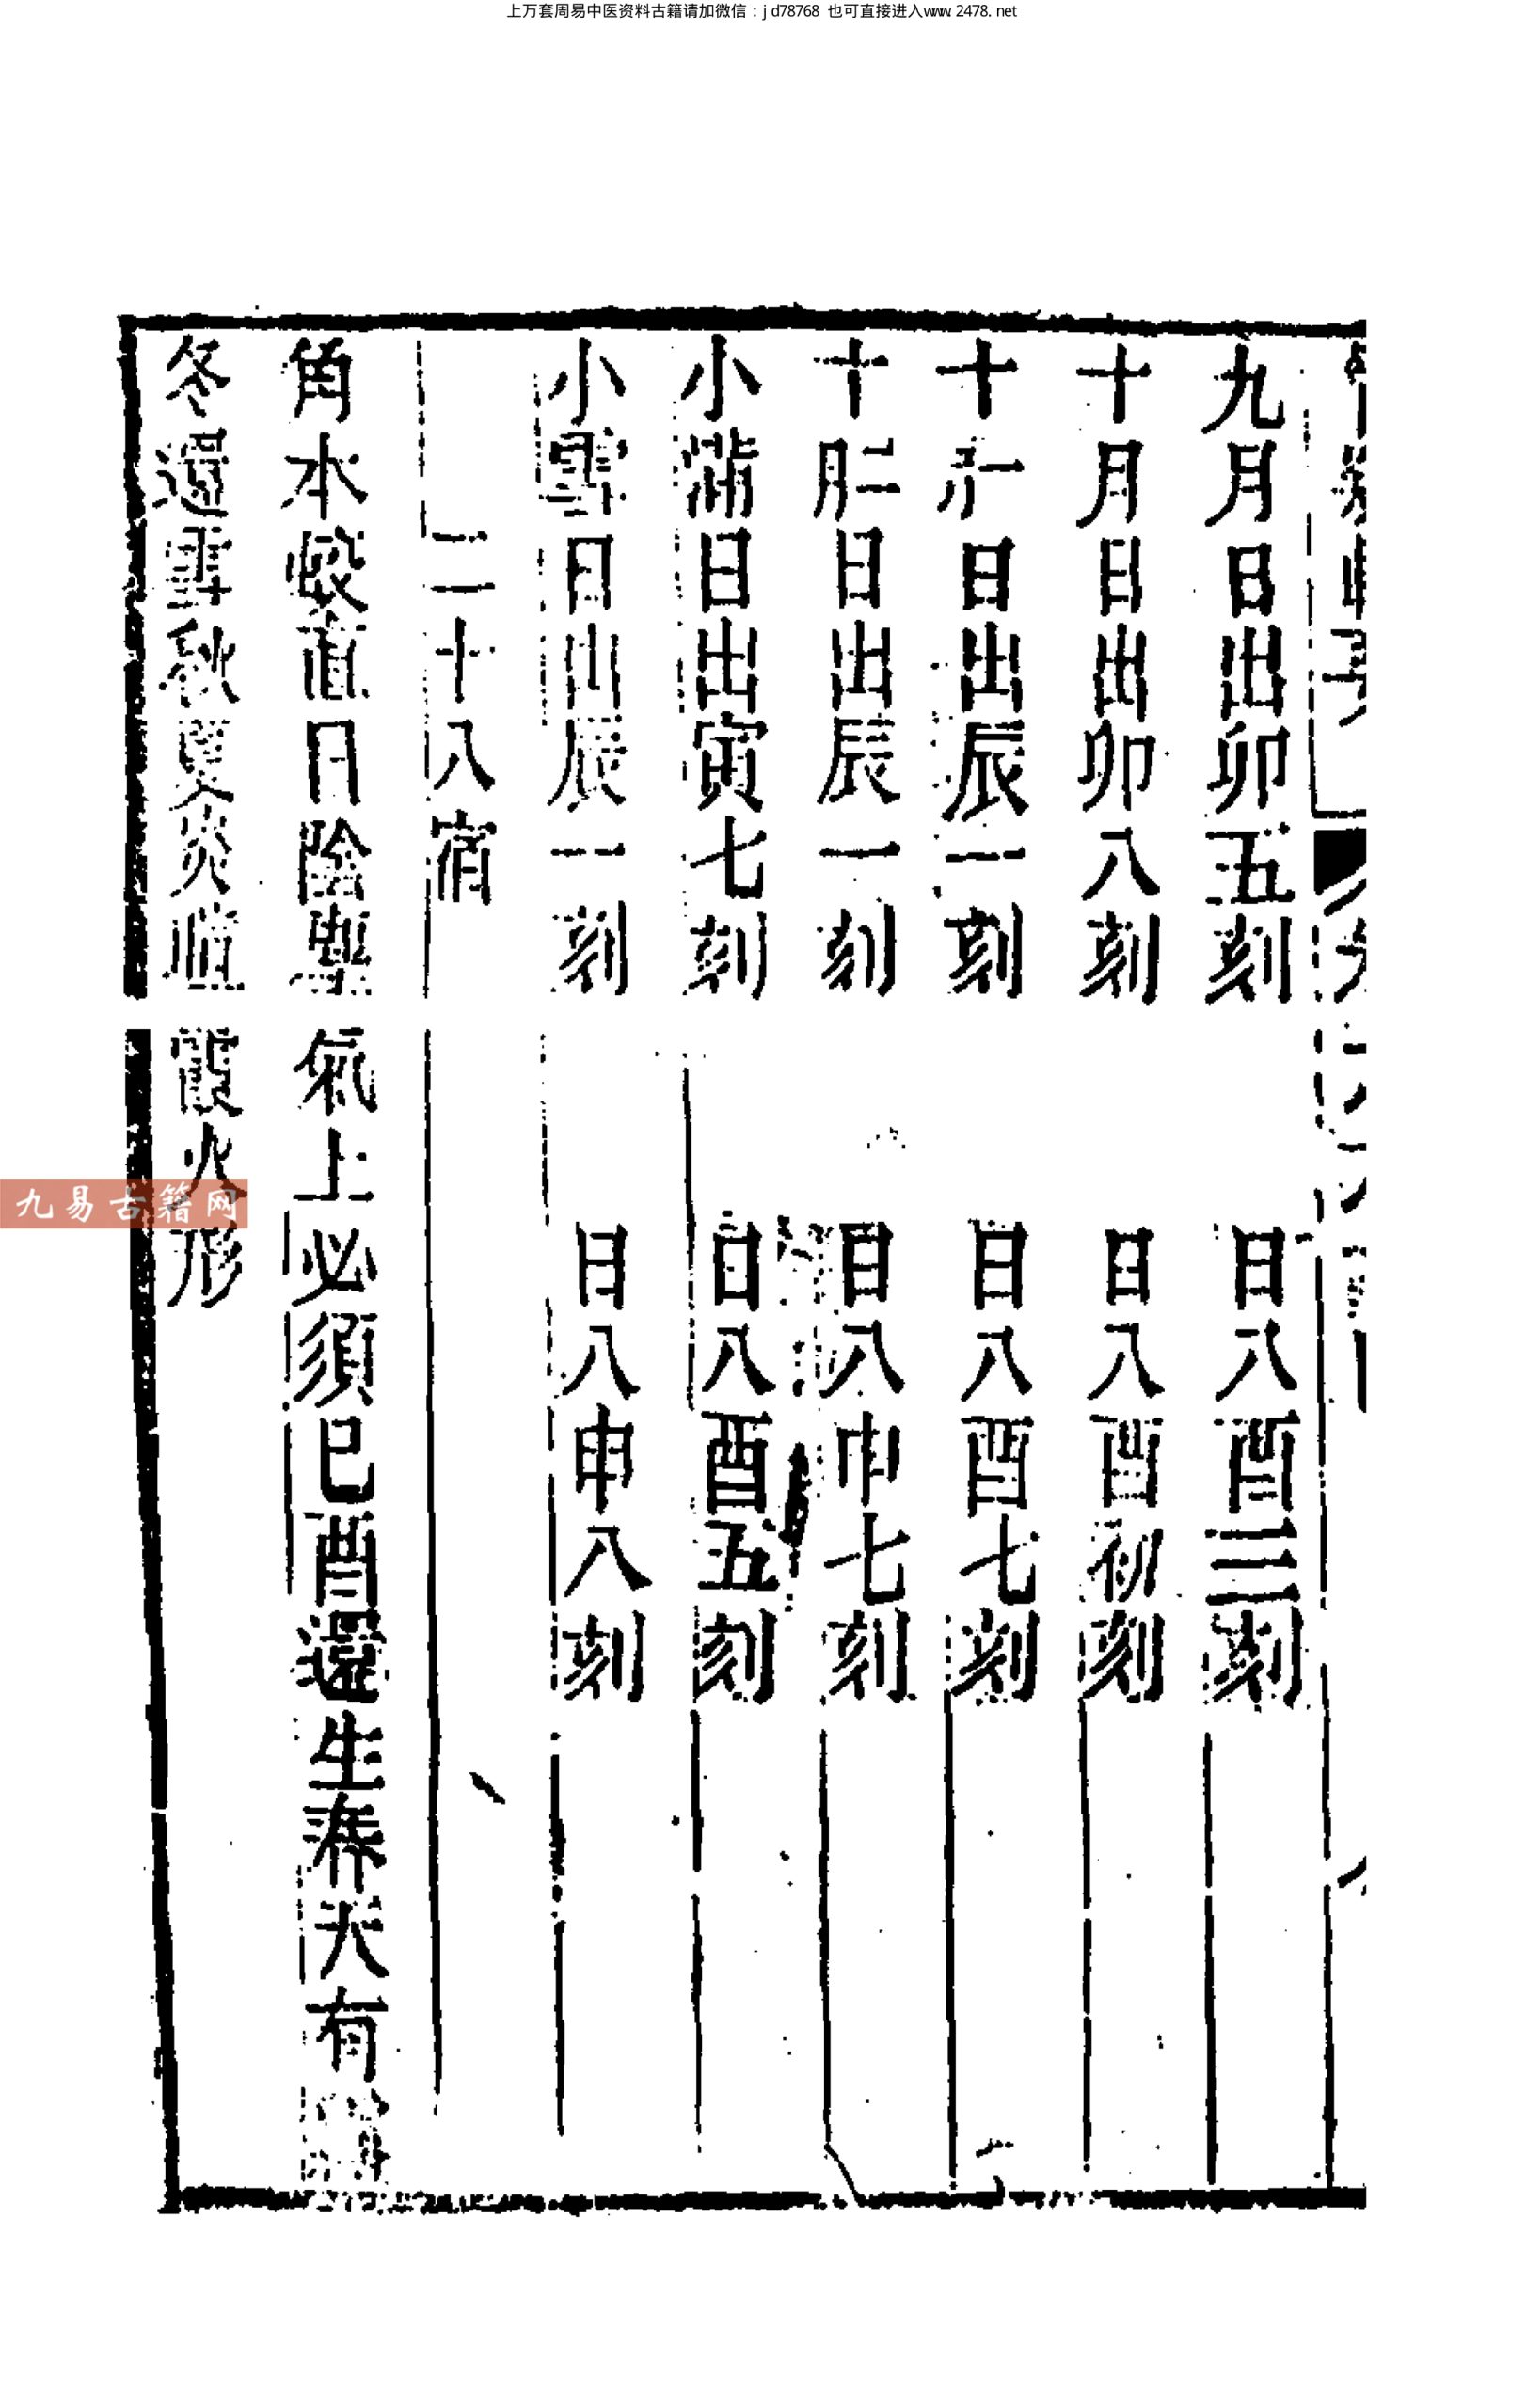 上万套周易中医资料古籍请加微信：jd78768 也可直接进入www.2478.net
九月日出卯五刻 日入酉三刻
十月日出卯八刻 日入酉初刻
十一月日出辰一刻 日入酉七刻
十二月日出辰一刻 日入申七刻
小滿日出寅七刻 日入酉五刻
小雪日出辰一刻 日入申八刻
二十八宿
角木蛟直日陰 氣上必須巳酉還生春天有
冬還雪秋夏炎 霞火形
九易古籍网